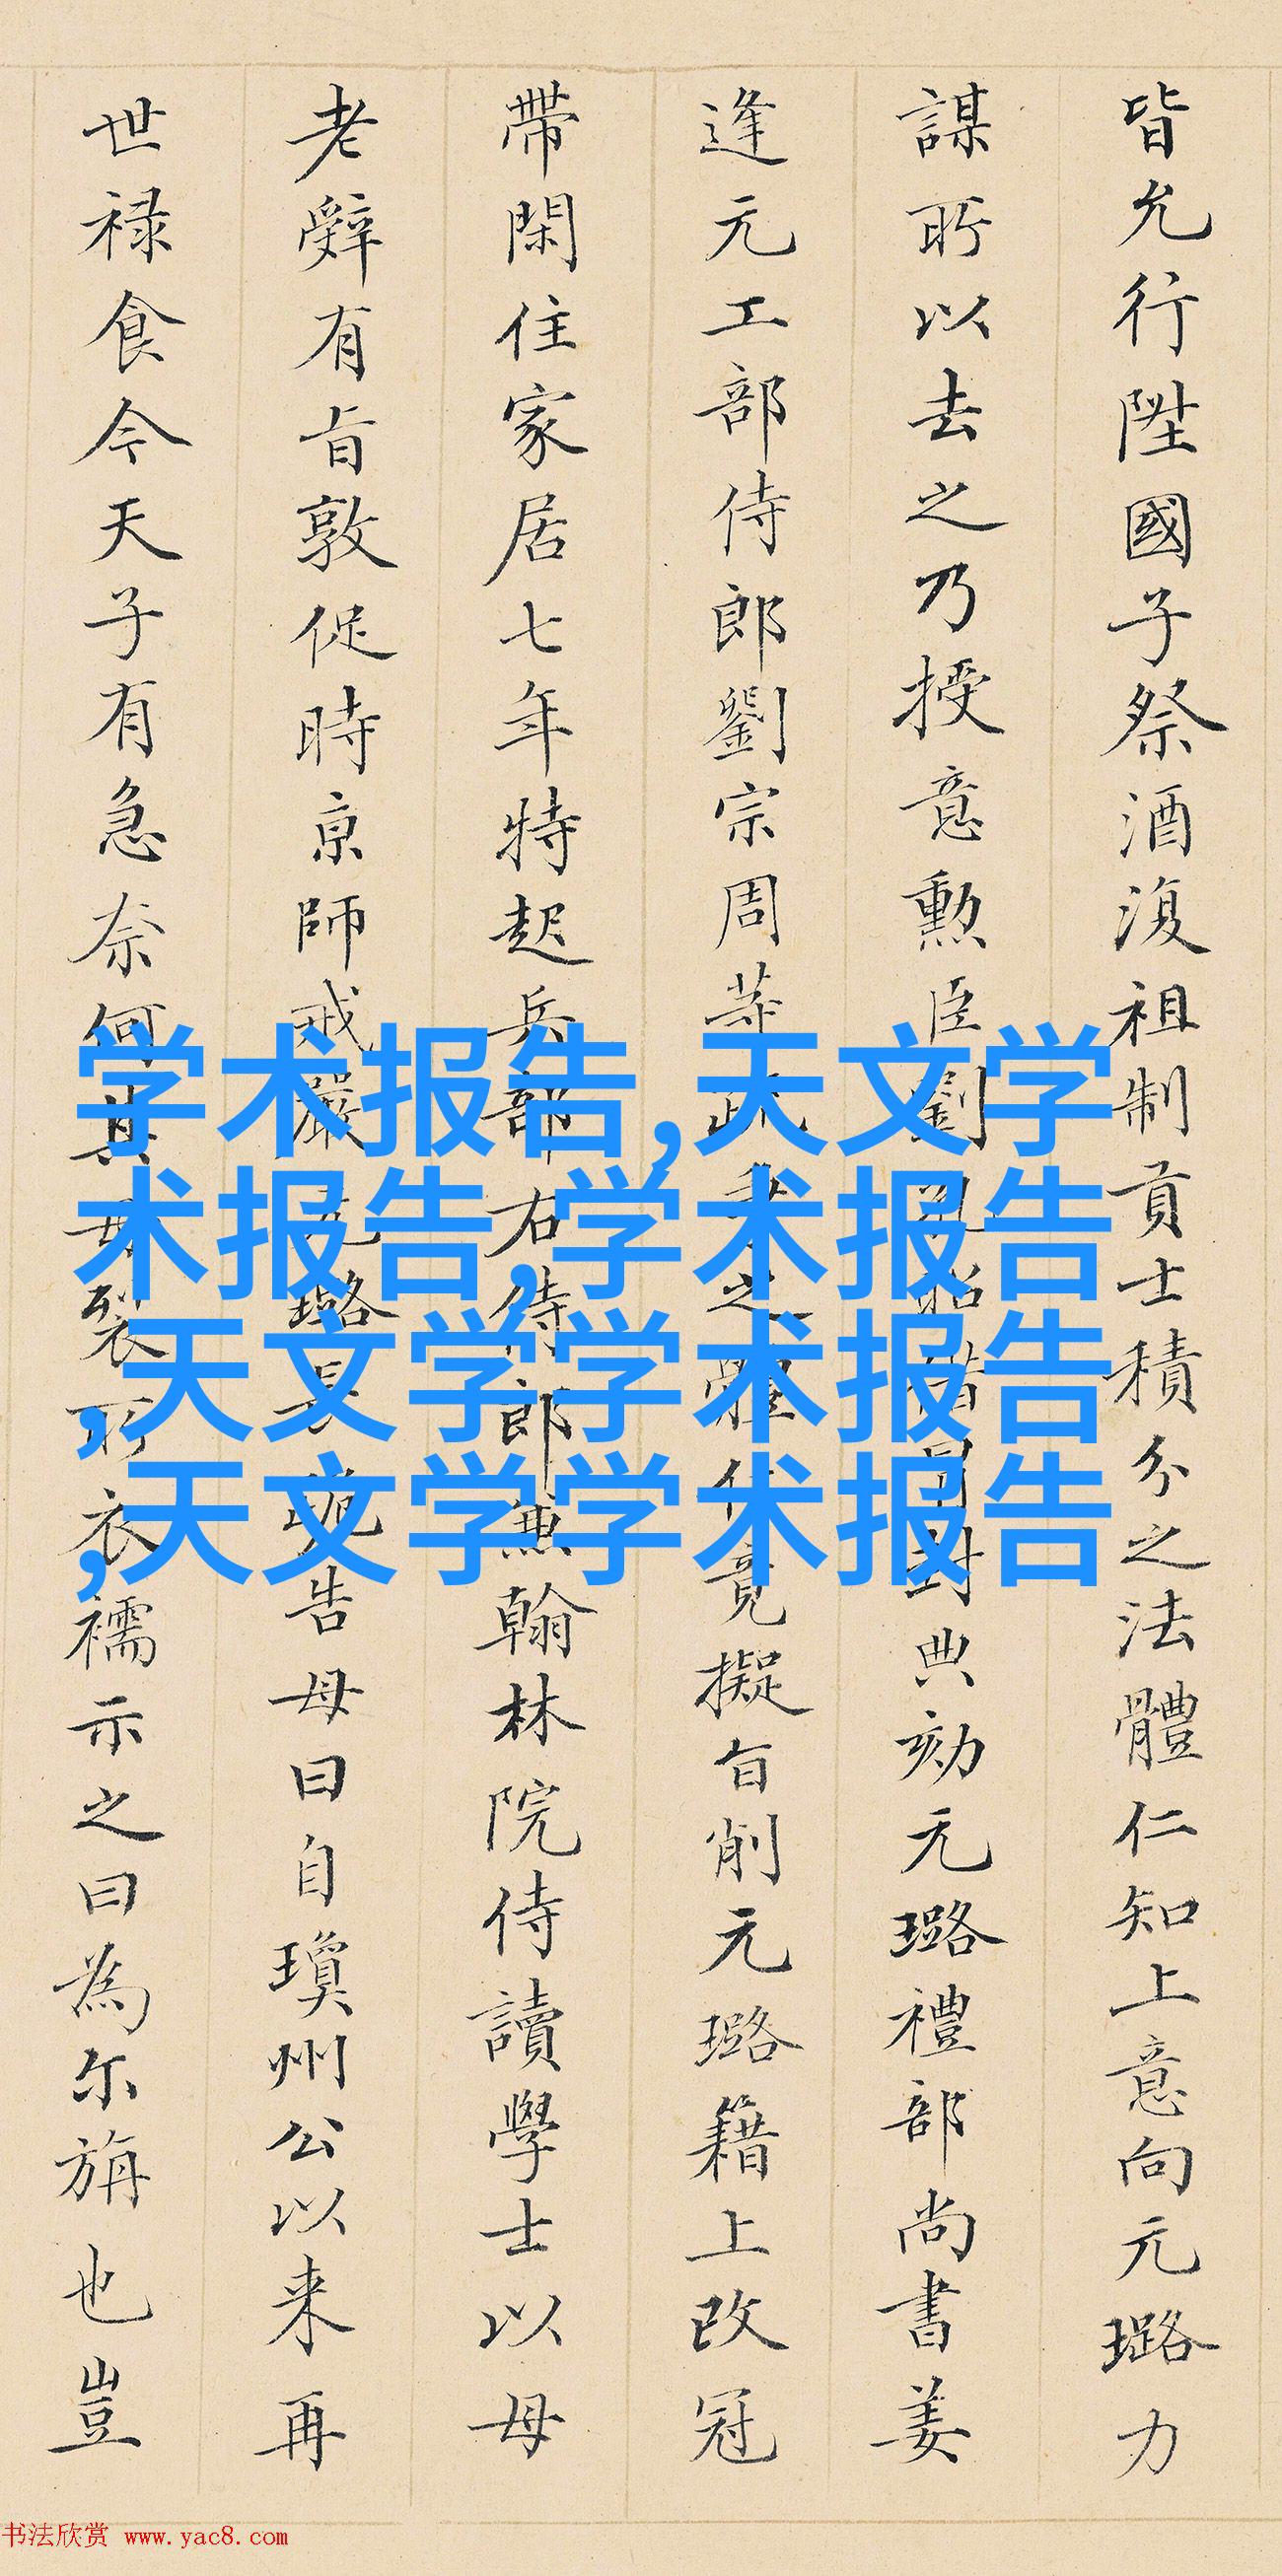 皆允行陞國子祭酒復祖制貢士積分之法體仁知上意向元璐力
謀所以去之乃授意勲臣劉借封典劾元璐禮部尚書姜
逢元工部侍郎劉宗周等疏之體仁竟擬旨削元璐籍上改冠
帶閑住家居七年特起兵部右侍郎兼翰林院侍讀學士以母
老辭有旨敦促時京師戒嚴元璐長跪告母曰自瓊州公以来再
世禄食今天子有急奈何其母裂所衣襦示之曰為尔旃也豈
学术报告,天文学
术报告,学术报告
,天文学学术报告
,天文学学术报告
书法欣赏 www.yac8.com